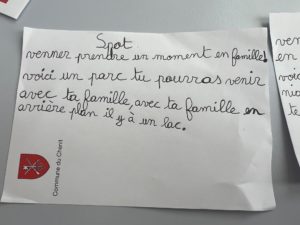 Spot
venner prendre un moment en famille!
voici un parc tu pourras venir
avec ta famille, avec ta famille en
arrière plan il y à un lac.
Commune du Chenit
ven
en
voic
te